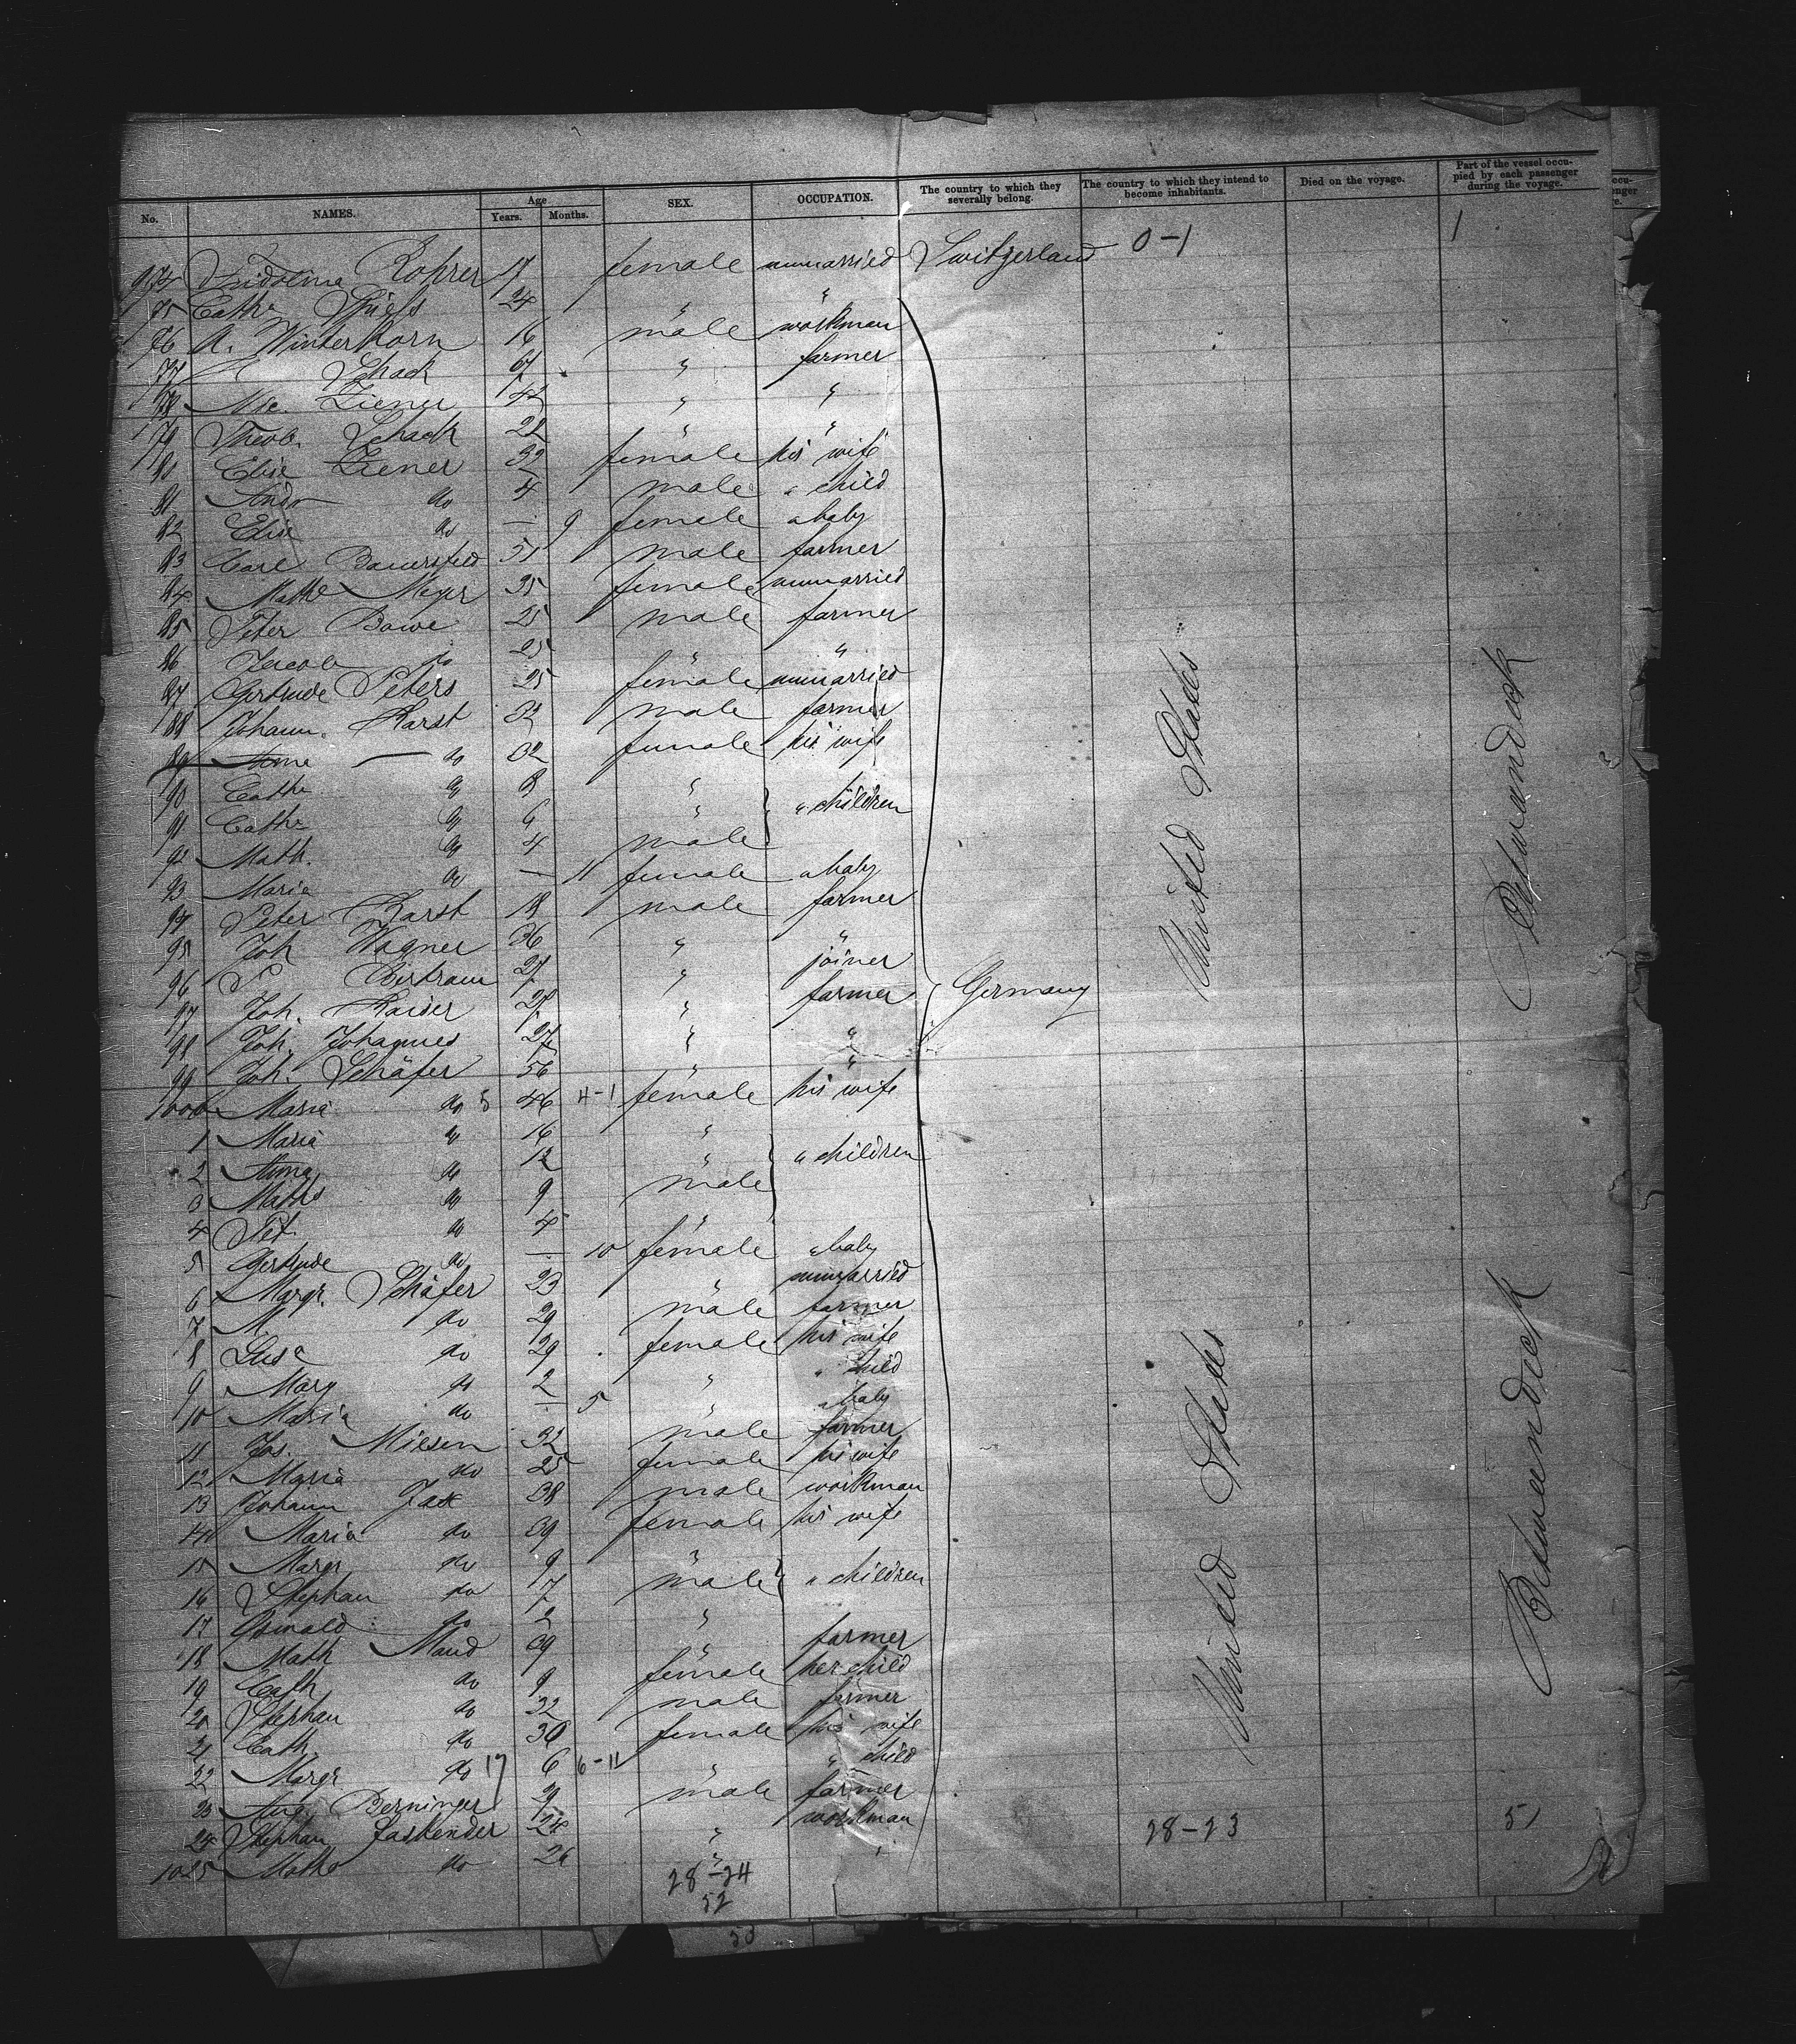 No. NAMES. Age Years. Months. SEX. OCCUPATION. The country to which they severally belong. The country to which they intend to become inhabitants. Died on the voyage. Part of the vessel occupied by each passenger during the voyage.
974 Fridoline Rohrer 17 female unmarried Switzerland 0-1 1
75 Cathe 24 " "
76 A. Winterkorn 16 male workman
77 Schack 67 " farmer
78 Nic. Ziener 42 " "
79 Theob. Schack 22 " "
80 Elise Ziener 32 female his wife
81 Andr do 4 male " child
82 Elise do — 9 female " baby
83 Carl Bauersfeld 51 male farmer
84 Mathe Meyer 35 female unmarried
85 Peter Bowe 25 male farmer
86 Jacob do 25 " "
87 Gertrude Peters 25 female unmarried
88 Johann. Karst 32 male farmer
89 Anna do 32 female his wife
90 Cathe do 8 "
91 Cathe do 6 " " children
92 Math. do 4 male
93 Maria do — 11 female " baby
94 Peter Karst 18 male farmer
95 Joh Wagner 36 " "
96 P Bertram 27 " joiner
97 Joh. Kaiser 28 " farmer Germany
98 Joh. Johannes 27 " "
99 Joh. Schäfer 56 " "
1000 Maria do 5 46 4-1 female his wife
1 Maria do 16 "
2 Anna do 12 " " children
3 Maths do 9 male
4 Pet. do 4 "
5 Gertrude do — 10 female " baby
6 Margr. Schäfer 23 " unmarried
7 M. do 29 male farmer
8 Luse do 29 female his wife
9 Marg do 2 " " child
10 Maria do — 5 " " baby
11 Jos. Miesen 32 male farmer
12 Maria do 25 female his wife
13 Johann Jax 38 male workman
14 Maria do 39 female his wife
15 Margr do 9 "
16 Stephan do 7 male " children
17 Oswald do 2 "
18 Math Maud 39 " farmer
19 Cath do 9 female her child
20 Stephan do 32 male farmer
21 Cath. do 30 female his wife
22 Margr do 17 6 6-11 " " child
23 Aug. Berninger 29 male farmer
24 Stephan Faskender 24 " workman 28-23 51
1025 Maths do 26 " "
28-24
52
53
United States
United States
Betweendeck
Betweendeck